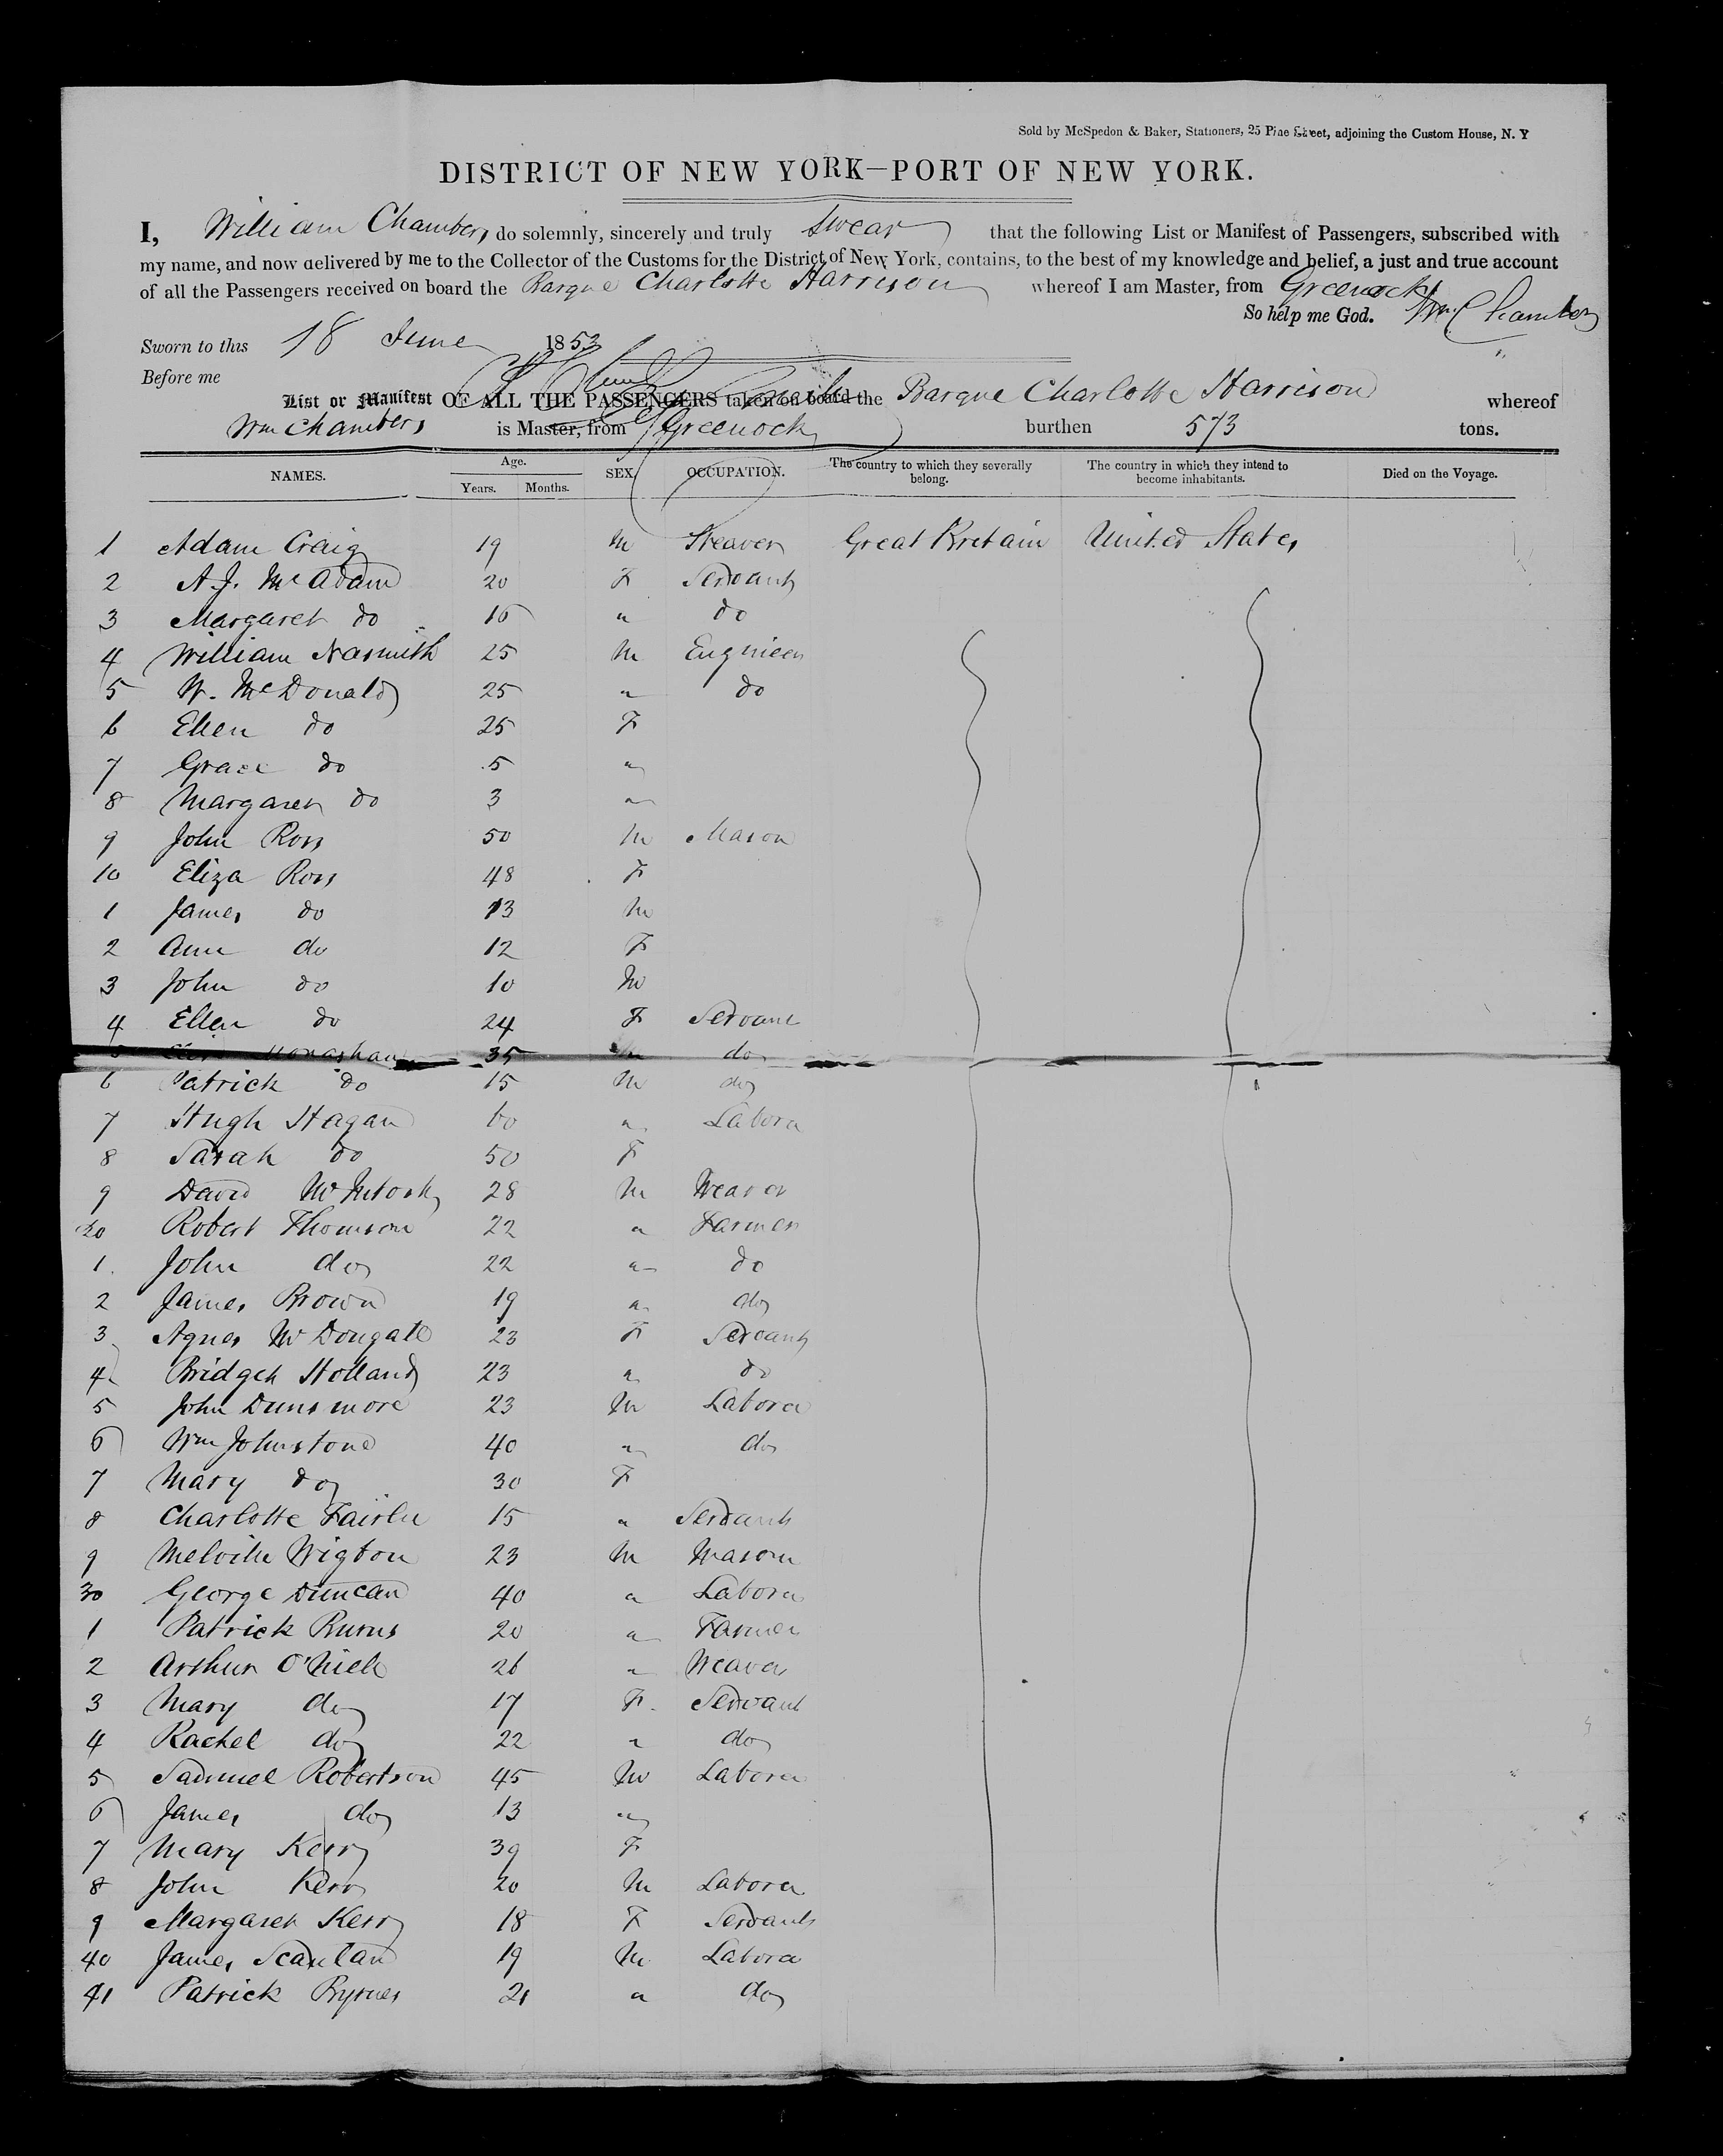 Sold by McSpedon & Baker, Stationers, 25 Pine Street, adjoining the Custom House, N. Y
DISTRICT OF NEW YORK—PORT OF NEW YORK.
I, William Chambers do solemnly, sincerely and truly swear that the following List or Manifest of Passengers, subscribed with
my name, and now delivered by me to the Collector of the Customs for the District of New York, contains, to the best of my knowledge and belief, a just and true account
of all the Passengers received on board the Barque Charlotte Harrison whereof I am Master, from Greenock
So help me God. Wm Chambers
Sworn to this 18 June 1853
Before me
List or Manifest OF ALL THE PASSENGERS taken on board the Barque Charlotte Harrison whereof
Wm Chambers is Master, from Greenock burthen 573 tons.
NAMES. Age. Years. Months. SEX. OCCUPATION. The country to which they severally belong. The country in which they intend to become inhabitants. Died on the Voyage.
1 Adam Craig 19 M Weaver Great Britain United States
2 A. J. McAdam 20 F Servant
3 Margaret do 16 " do
4 William Nasmith 25 M Engineer
5 W. McDonald 25 " do
6 Ellen do 25 F
7 Grace do 5 "
8 Margaret do 3 "
9 John Ross 50 M Mason
10 Eliza Ross 48 F
1 James do 13 M
2 Ann do 12 F
3 John do 10 M
4 Ellen do 24 F Servant
5 Monaghan 35 do
6 Patrick do 15 M do
7 Hugh Hagan 60 " Labora
8 Sarah do 50 F
9 David McIntosh 28 M Weaver
20 Robert Thomson 22 " Farmer
1 John do 22 " do
2 James Brown 19 " do
3 Agnes McDougall 23 F Servant
4 Bridget Holland 23 " do
5 John Dunsmore 23 M Labora
6 Wm Johnstone 40 " do
7 Mary do 30 F
8 Charlotte Fairlie 15 " Servant
9 Melville Wigton 23 M Mason
30 George Duncan 40 " Labora
1 Patrick Burns 20 " Farmer
2 Arthur O'Niele 26 " Weaver
3 Mary do 17 F. Servant
4 Rachel do 22 " do
5 Samuel Robertson 45 M Labora
6 James do 13 "
7 Mary Kerr 39 F
8 John Kerr 20 M Labora
9 Margaret Kerr 18 F Servant
40 James Scanlan 19 M Labora
41 Patrick Byrnes 21 " do